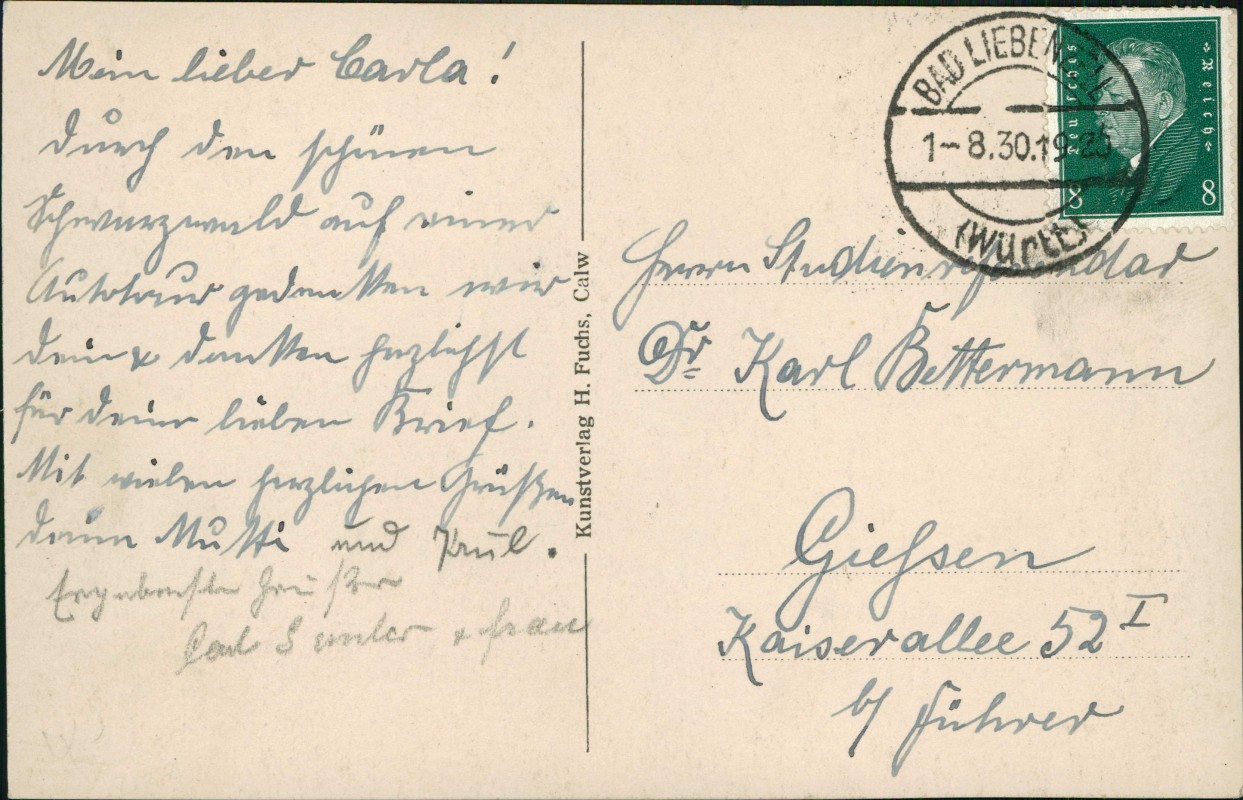 Mein lieber Carla!
durch den schönen
Schwarzwald auf einer
Autotour gedenken wir
dein & danken herzlichst
für deinen lieben Brief.
Mit vielen herzlichen Grüßen
deine Mutti und
Ergebenste Grüße
Carl & Frau
Kunstverlag H. Fuchs, Calw
BAD LIEBENZELL
1-8.30.19-20
(Württ)
Deutsches Reich
8 8
Herrn Studienreferendar
Dr Karl Bettermann
Giessen
Kaiserallee 52 I
b/ Führer